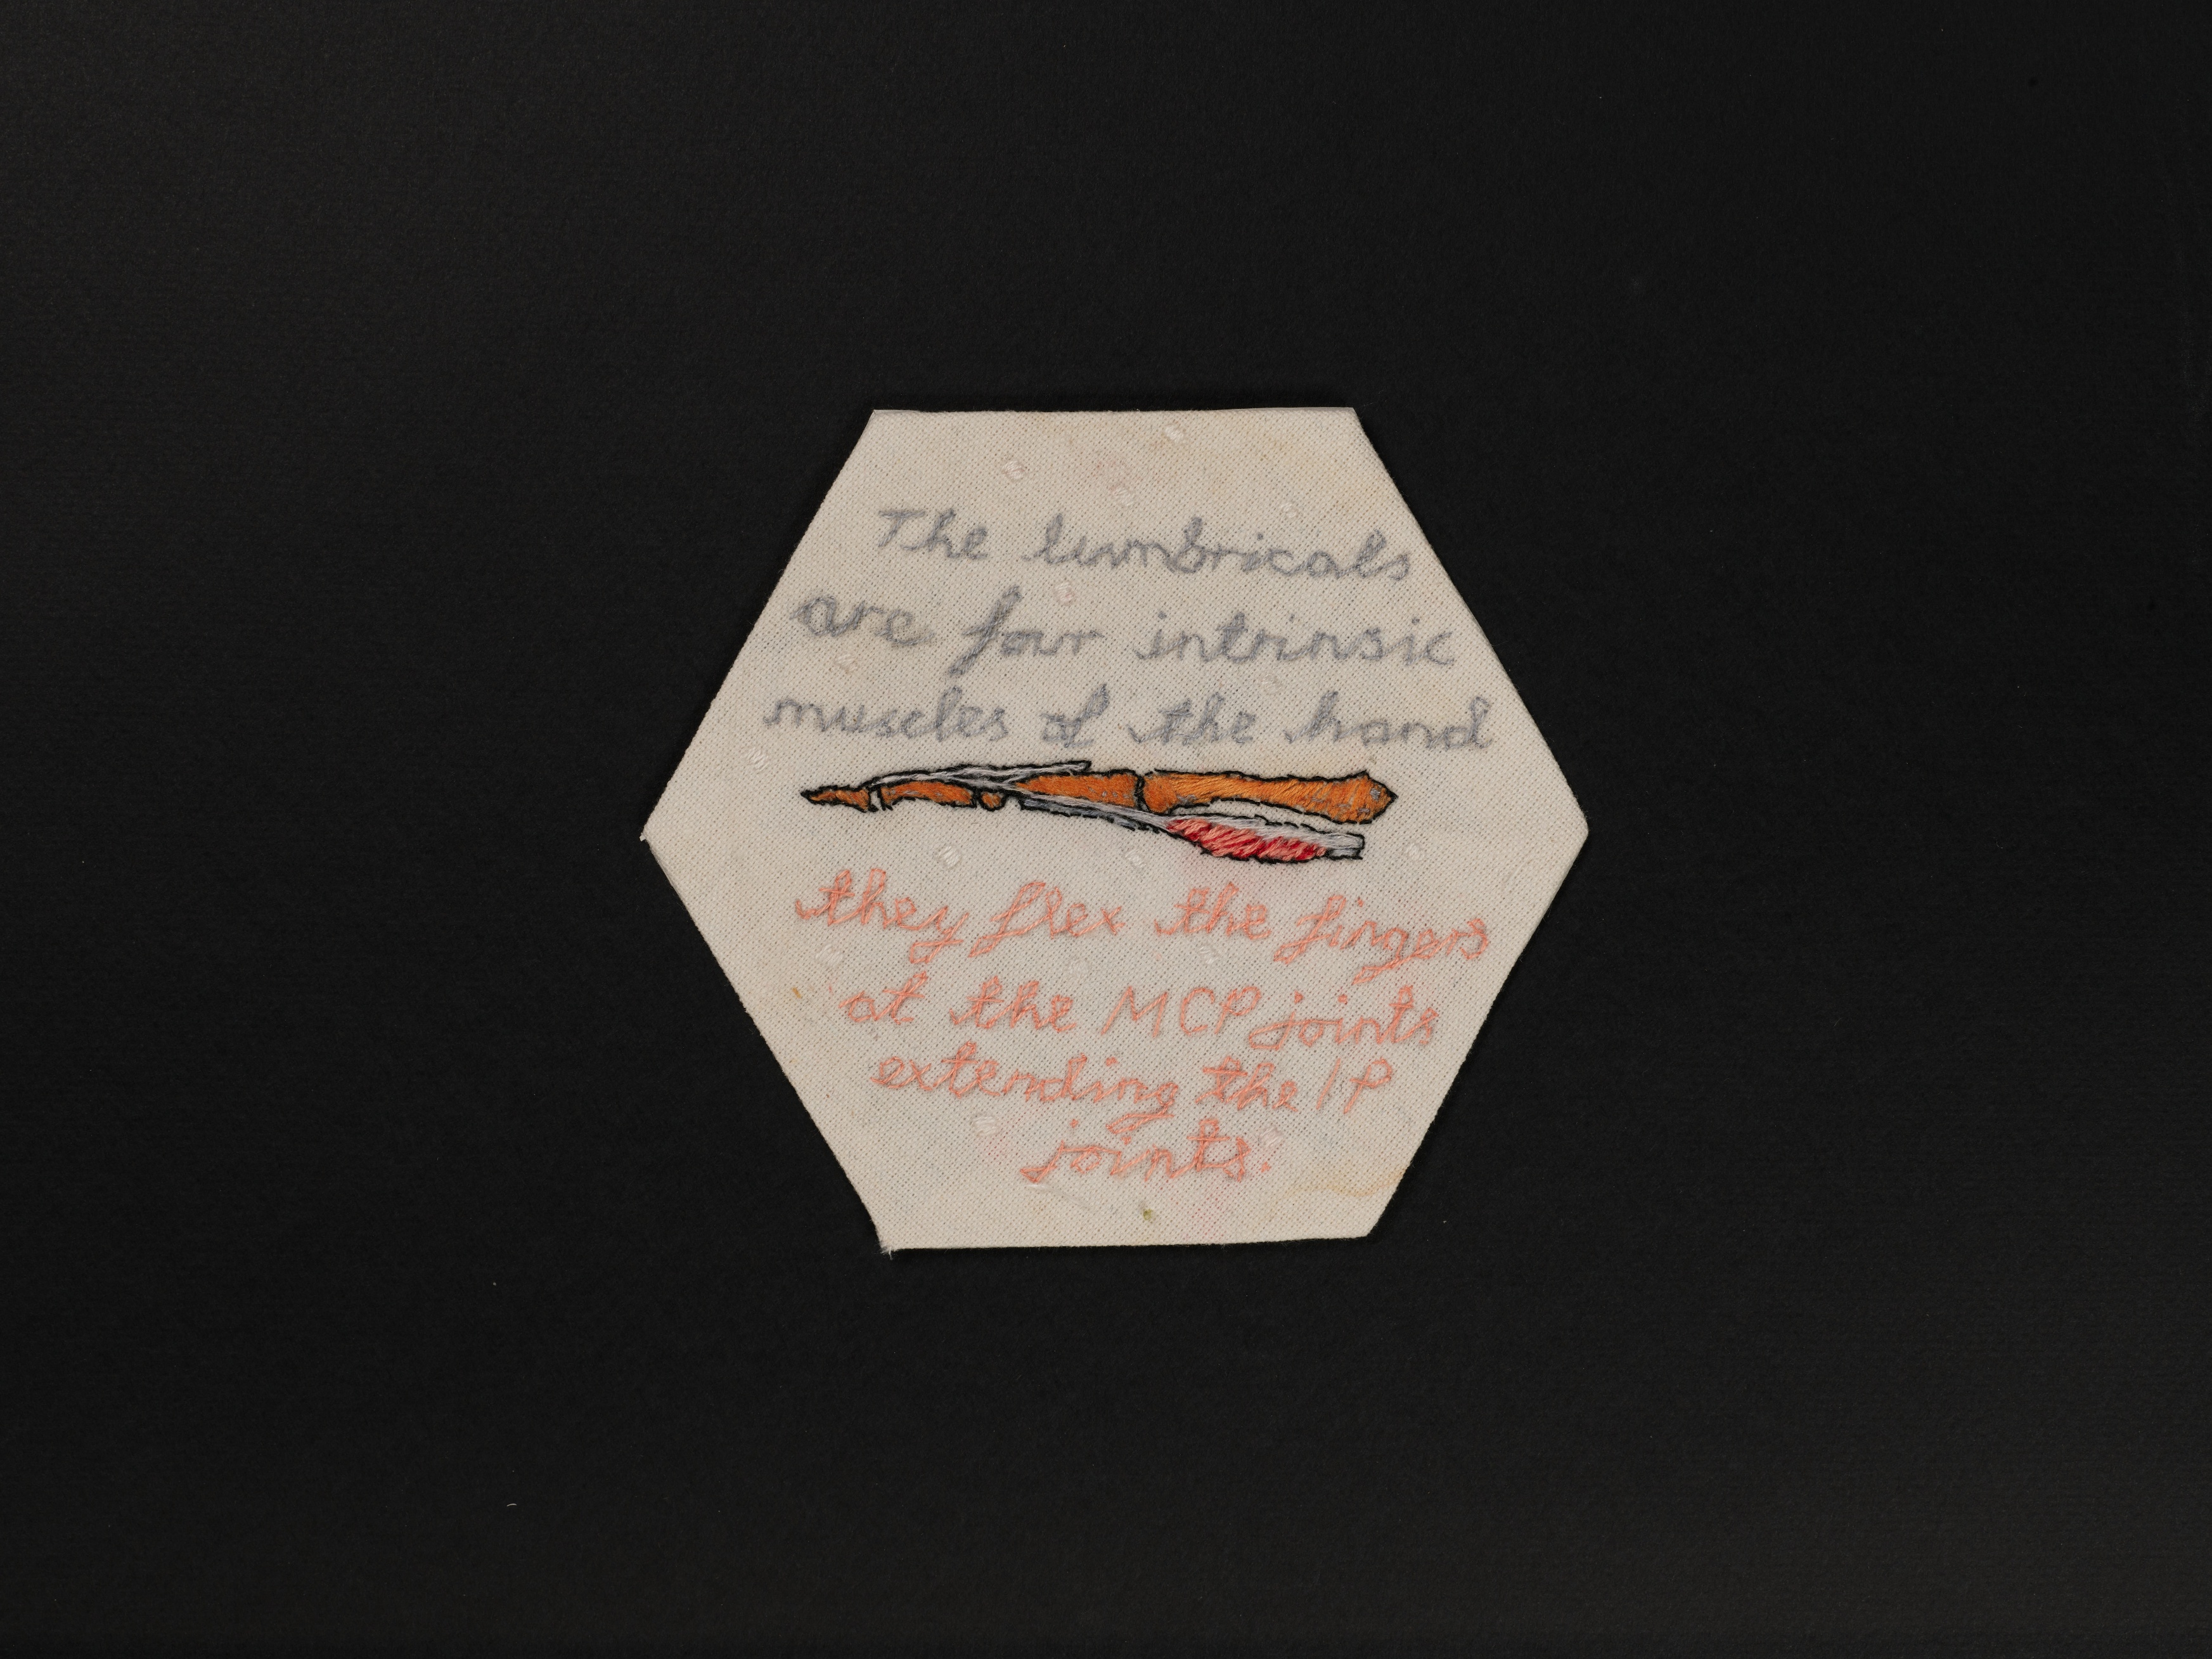 The lumbricals
are four intrinsic
muscles of the hand
they flex the fingers
at the MCP joints
extending the IP
joints.